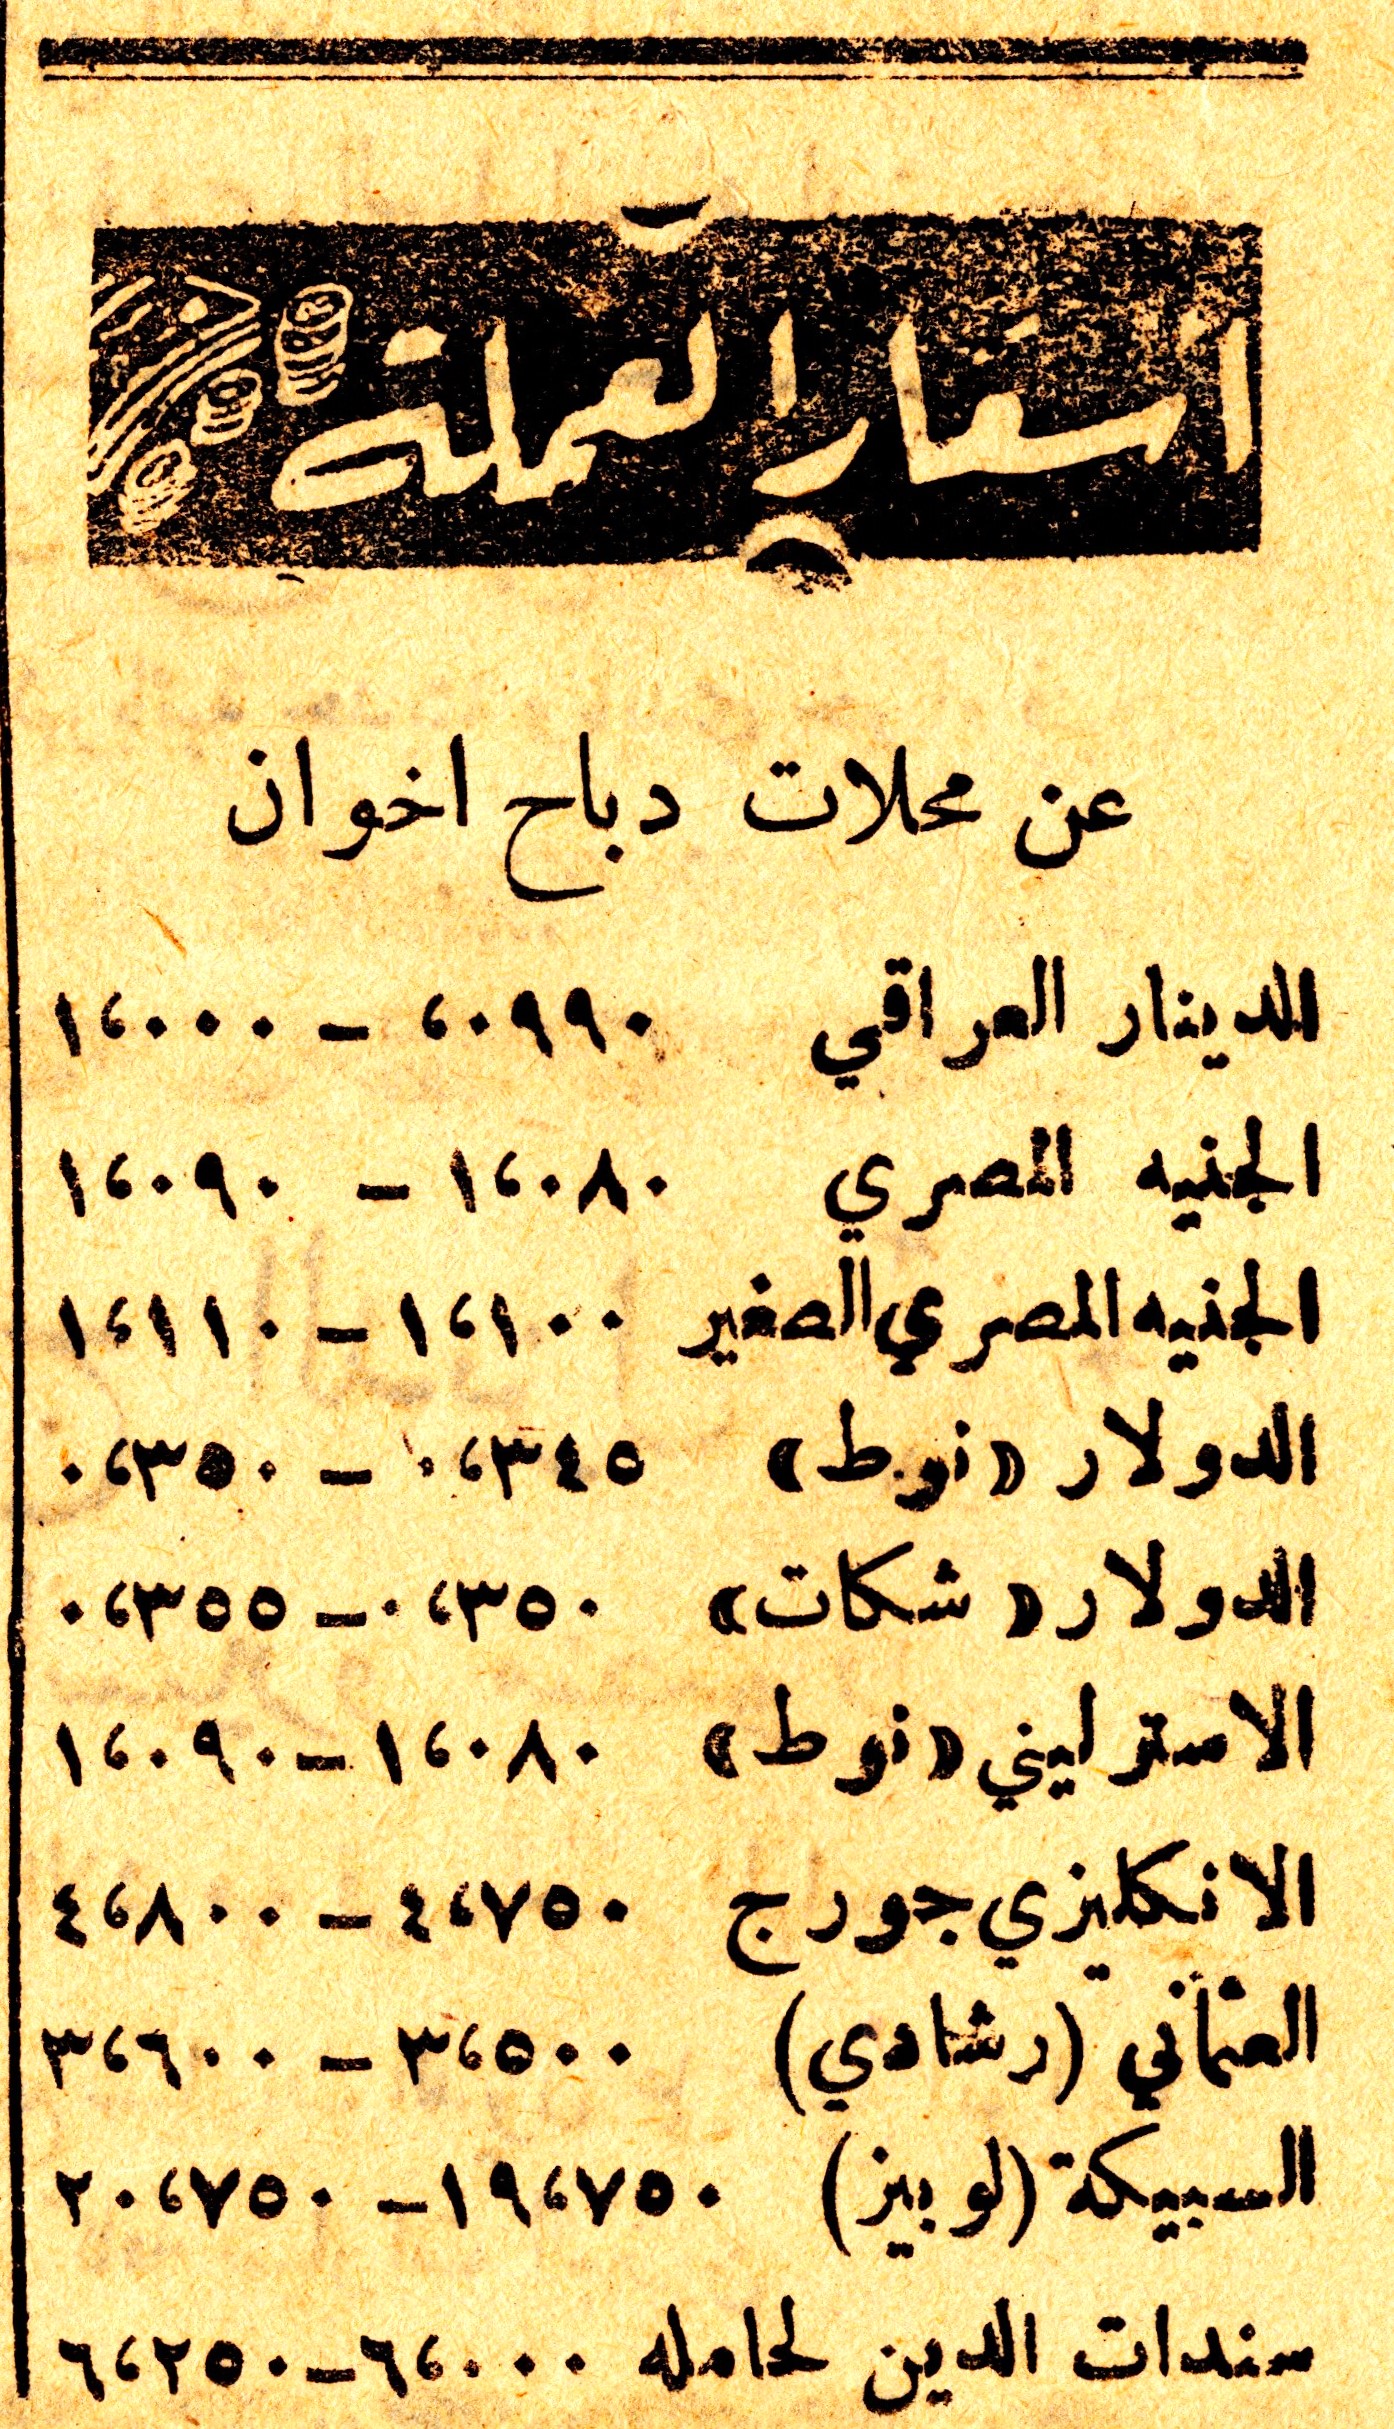 اسعار العملة
عن محلات دباح اخوان
الدينار العراقي ٠٩٩٠،٠ – ١،٠٠٠
الجنيه المصري ١،٠٨٠ – ١،٠٩٠
الجنيه المصري الصغير ١،١٠٠ – ١،١١٠
الدولار «نوط» ٠،٣٤٥ – ٠،٣٥٠
الدولار «شكات» ٠،٣٥٠ – ٠،٣٥٥
الاسترليني «نوط» ١،٠٨٠ – ١،٠٩٠
الانكليزي جورج ٤،٧٥٠ – ٤،٨٠٠
العثماني (رشادي) ٣،٥٠٠ – ٣،٦٠٠
السبيكة (لوبيز) ١٩،٧٥٠ – ٢٠،٧٥٠
سندات الدين لحامله ٦،٠٠٠ – ٦،٢٥٠